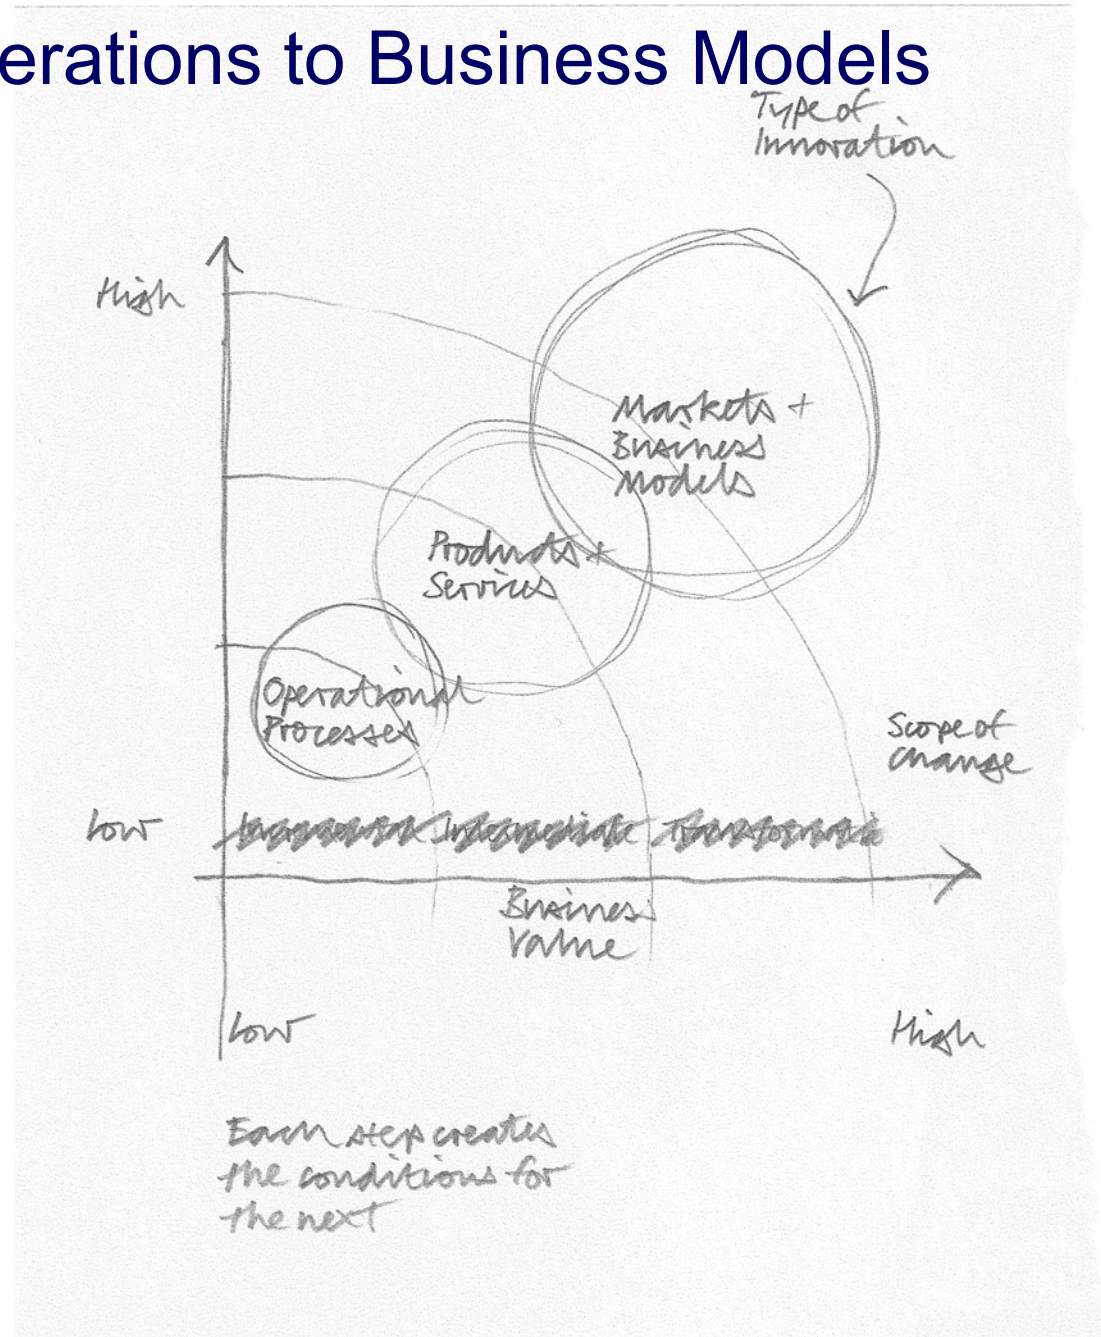 erations to Business Models
Type of
Innovation
High
Markets +
Business
Models
Products +
Services
Operational
Processes
Scope of
change
Low
Incremental Intermediate
Business
Value
Low
High
Each step creates
the conditions for
the next